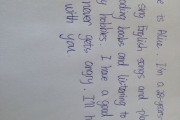 is Alice. I'm a
English songs and
books and listening to
hobbies. I have a good
never gets angry. I'll
with you